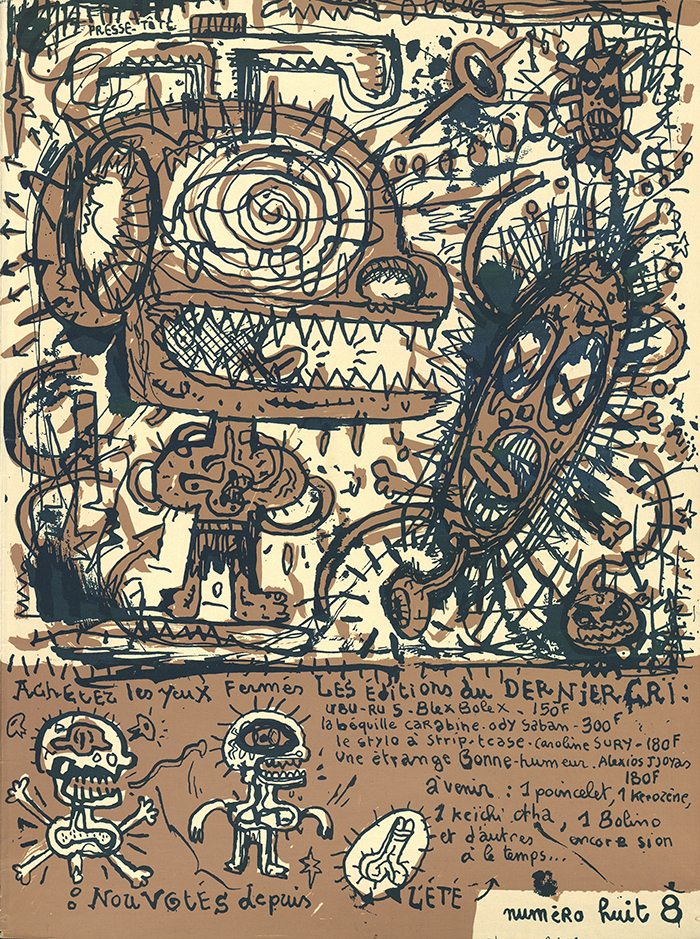 PRESSE-TÊTE
AcHEtEZ les yeux Fermés LES Éditions du DERNjER CRI :
UBU-RU S - BLEX BOLEX - 150F
la béquille CARABINE - ody Saban - 300F
le stylo à strip-tease - caroline SURY - 180F
Une étrange Bonne-humeur - Alexios TJOYAS
180F
à venir : 1 poincelet, 1 Kerozène,
1 Keïichi otha, 1 Bolino
et d'autres encore si on
a le temps...
: NouVOtÉS depuis L'ÉTÉ
numéro huit 8